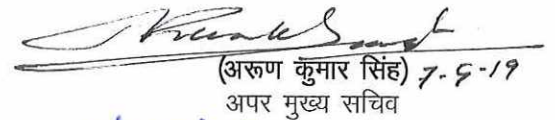 (अरूण कुमार सिंह) 7-6-19
अपर मुख्य सचिव